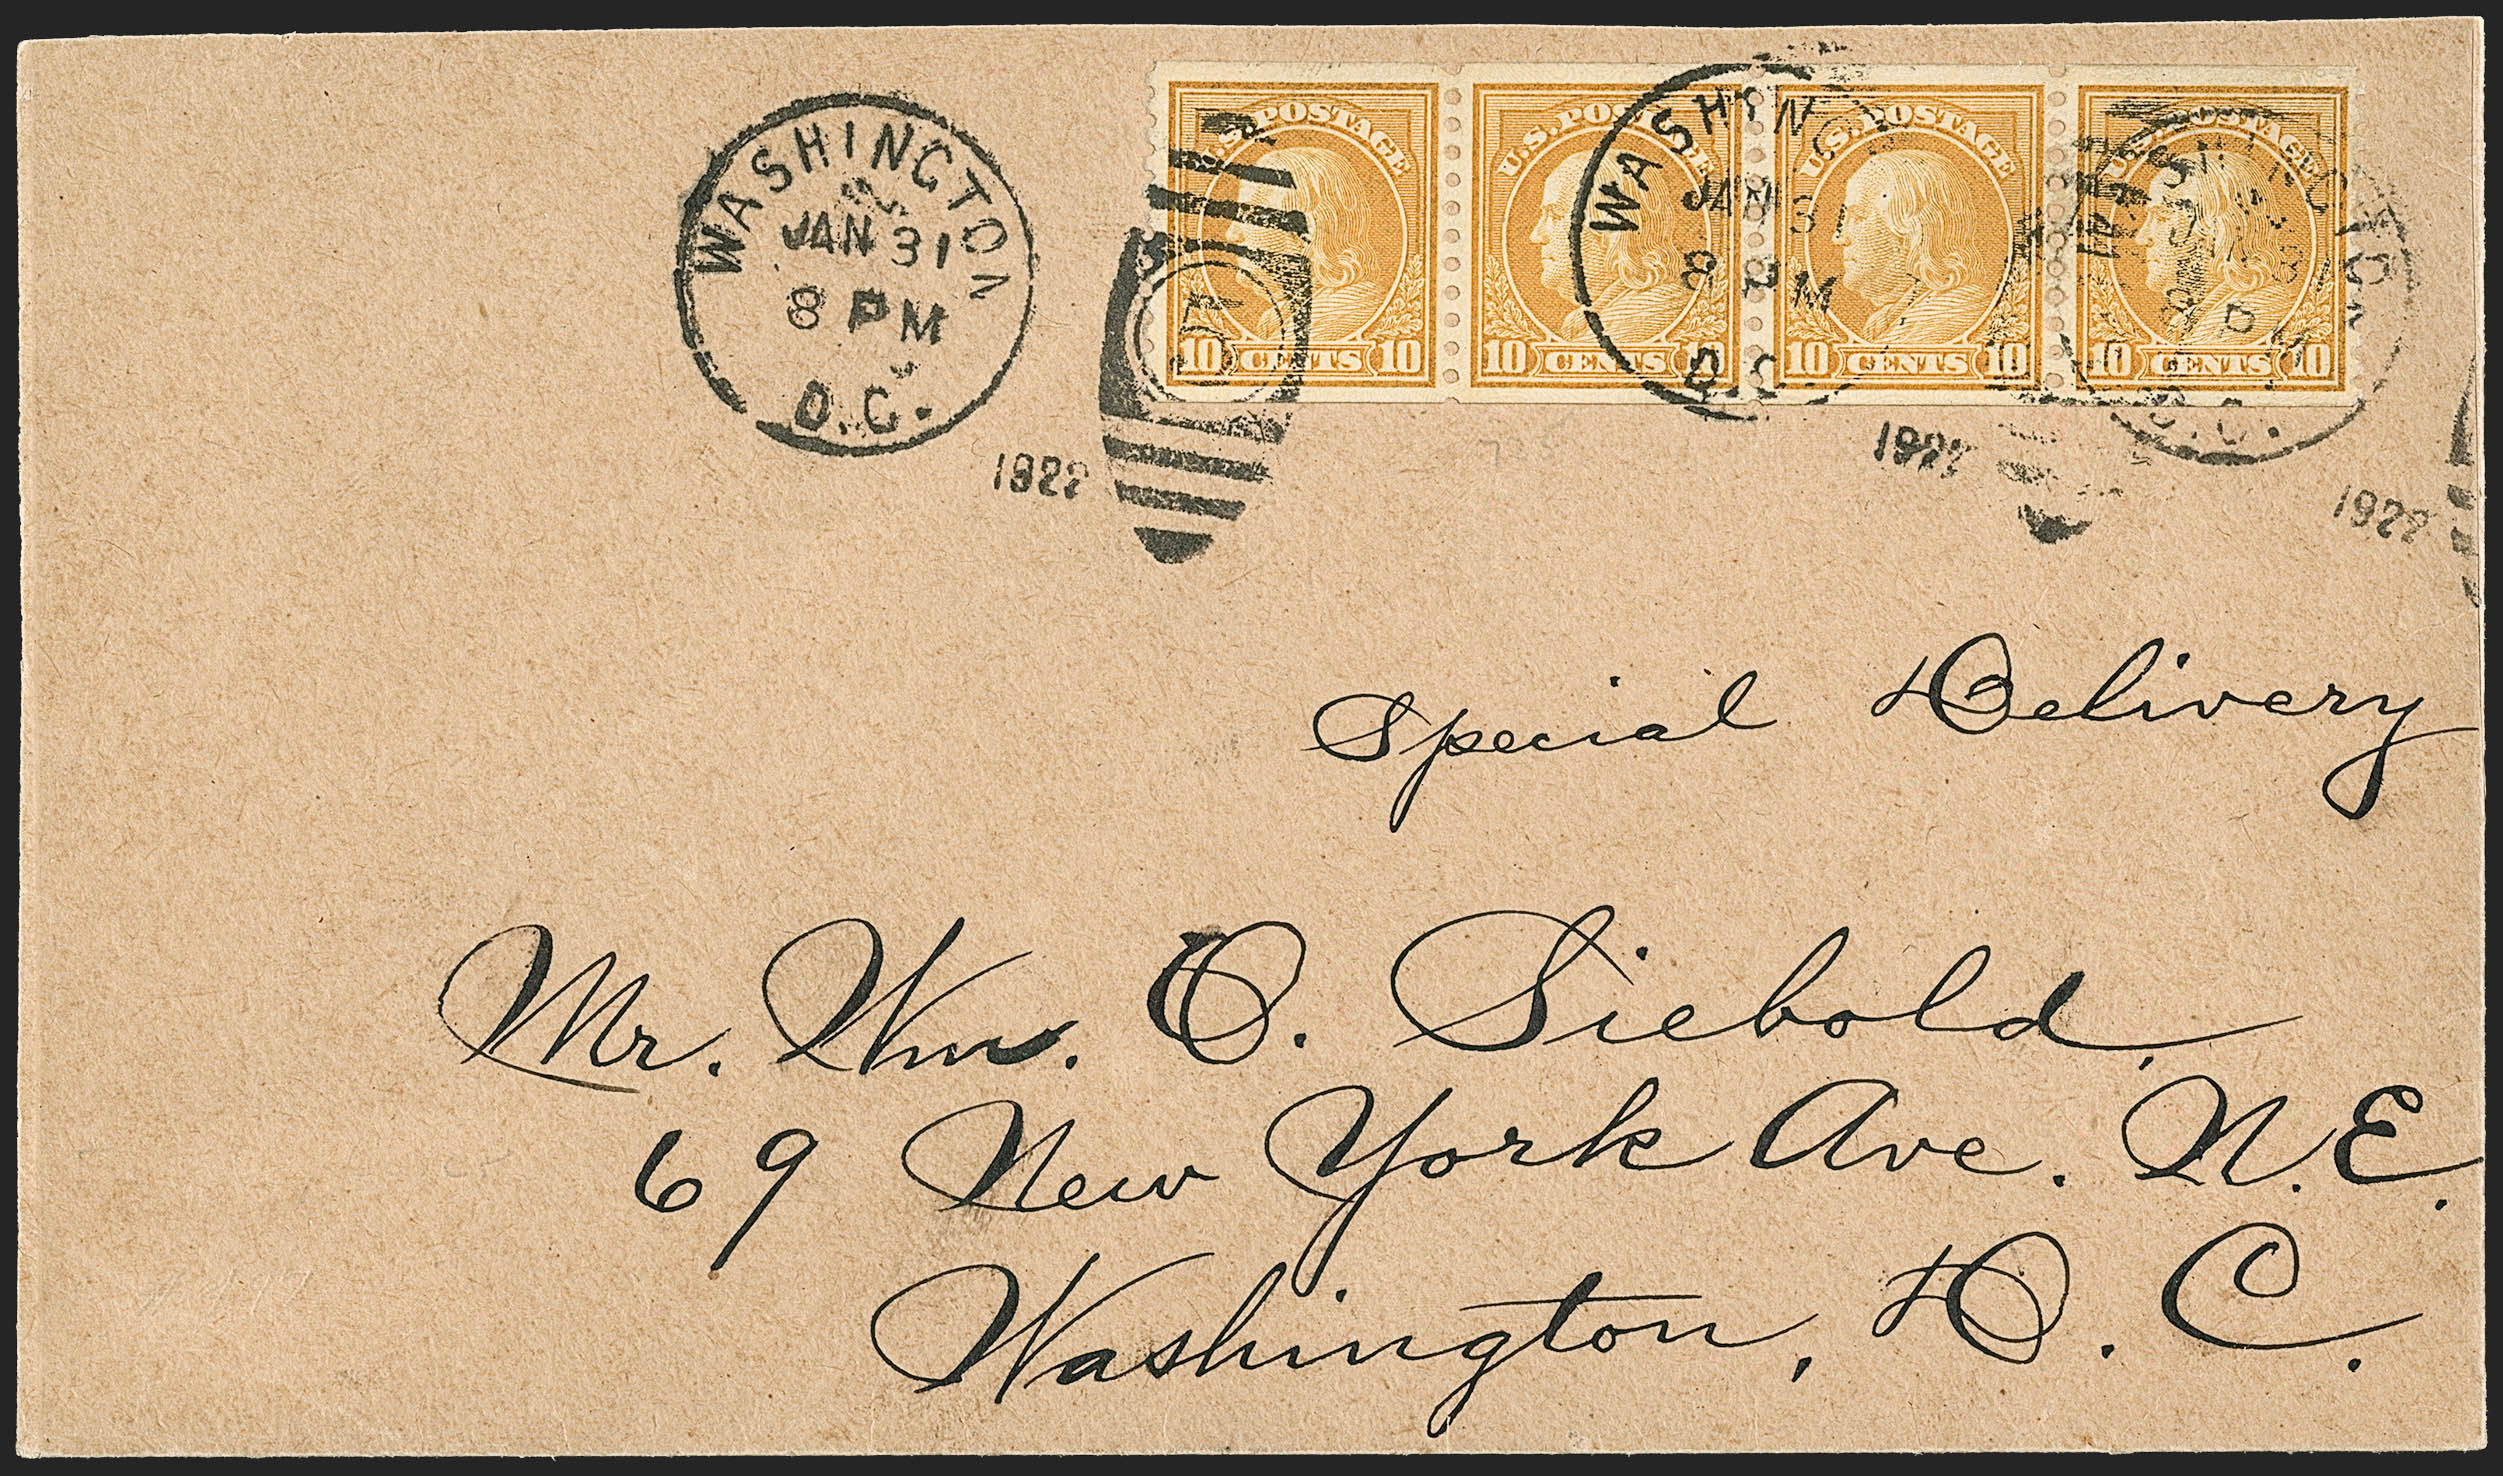 WASHINGTON
JAN 31
8 PM
D.C.
1922
U.S. POSTAGE
10 CENTS 10
U.S. POSTAGE
10 CENTS 10
U.S. POSTAGE
10 CENTS 10
U.S. POSTAGE
10 CENTS 10
WASHINGTON
JAN 31
8 PM
D.C.
1922
WASHINGTON
JAN 31
8 PM
D.C.
1922
Special Delivery
Mr. Wm. O. Siebold,
69 New York Ave. N.E.
Washington, D. C.